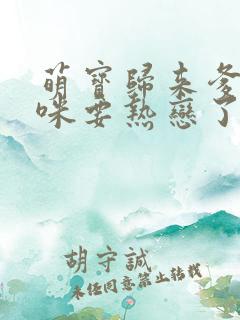 萌寶歸来爹
咪要熱戀了
胡守誠
未经同意禁止转载